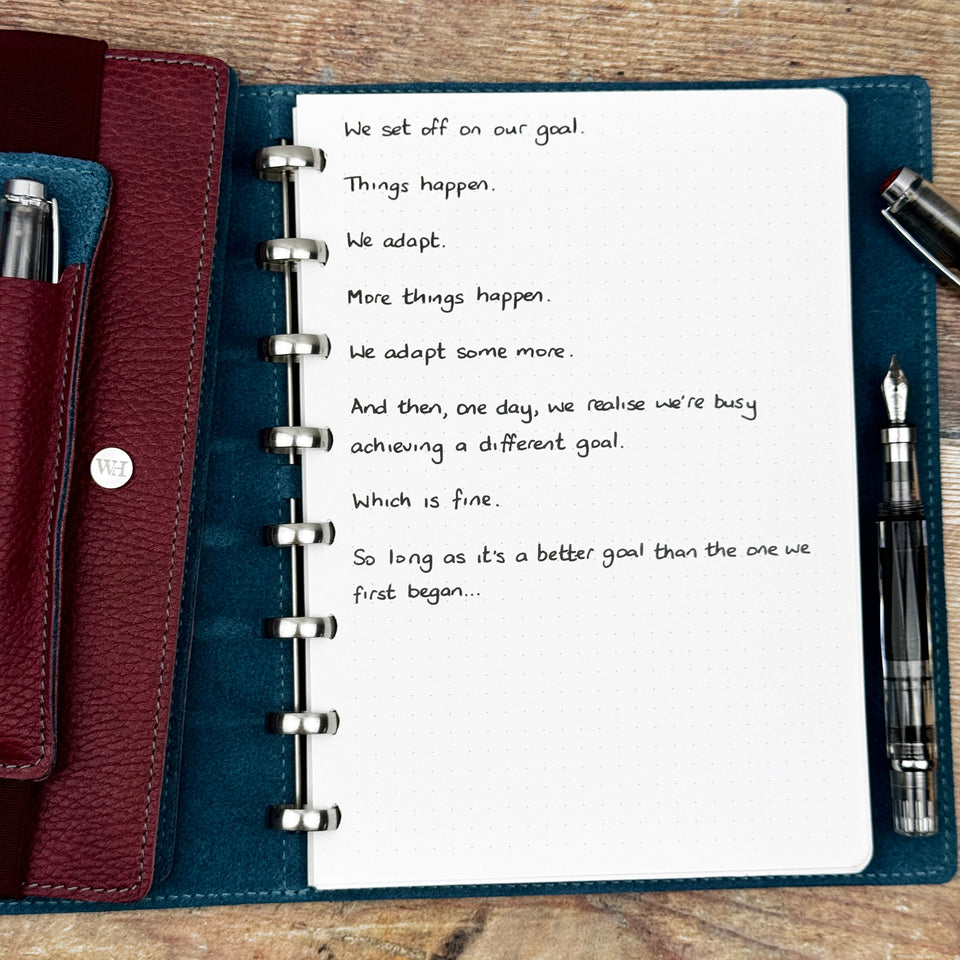 We set off on our goal.
Things happen.
We adapt.
More things happen.
We adapt some more.
And then, one day, we realise we're busy
achieving a different goal.
Which is fine.
So long as it's a better goal than the one we
first began...
WH